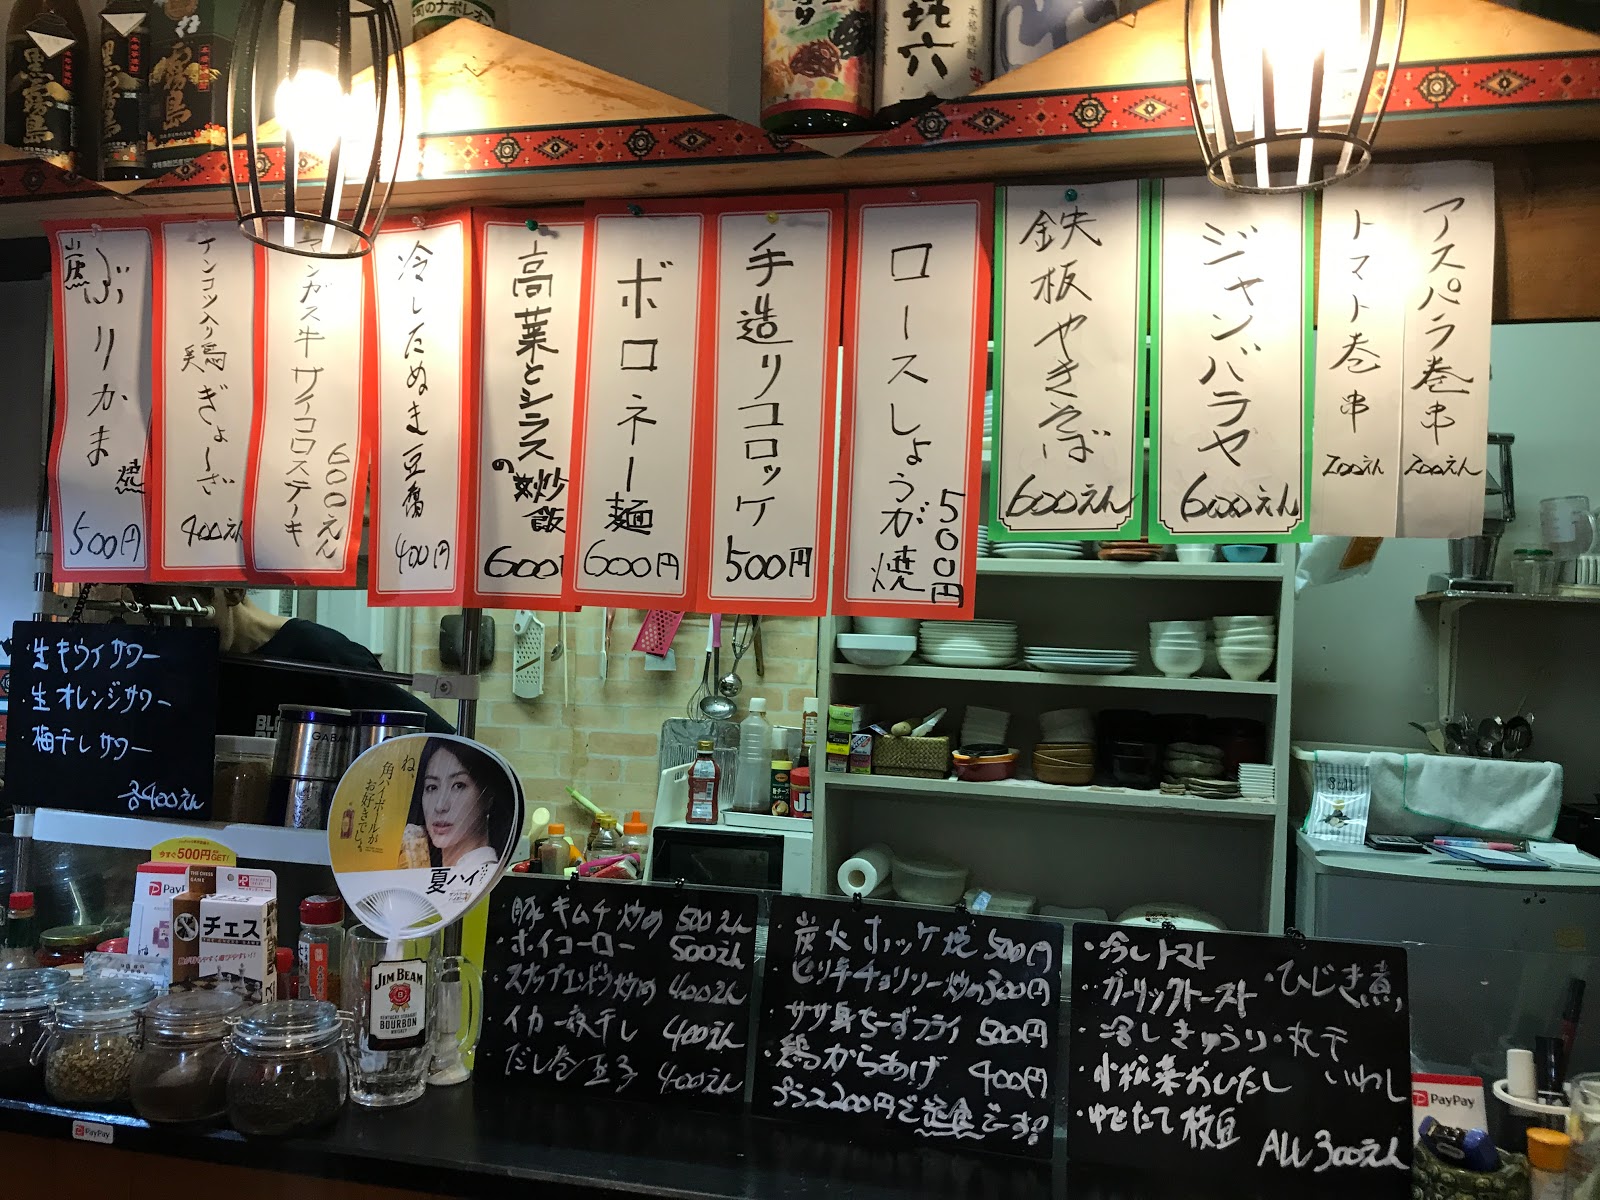 黒霧島
黒霧島
霧島
町のナポレオ
㐂六
炭ぶりカま焼
500円
ナンコツ入り鶏ぎょーざ
400えん
マンガス牛サイコロステーキ
600えん
冷したぬき豆腐
400円
高菜とシラスの炒飯
600
ボロネー麺
600円
手造りコロッケ
500円
ロースしょうが焼
500円
鉄板やきそば
600えん
ジャンバラヤ
600えん
トマト巻串
200えん
アスパラ巻串
200えん
・生キウイサワー
・生オレンジサワー
・梅干しサワー
各400えん
GABAN
今すぐ500円GET!
PayPay
THE CHESS GAME
チェス
ね、
角ハイボールが
お好きでしょ。
夏ハイ
JIM BEAM
KENTUCKY STRAIGHT
BOURBON
WHISKEY
PayPay
・豚キムチ炒め 500えん
・ホイコーロー 500えん
・スナップエンドウ炒め 400えん
・イカ一夜干し 400えん
・だし巻玉子 400えん
・炭火ホッケ焼 500円
・ピリ辛チョリソー炒め 300円
・ササ身ちーずフライ 500円
・鶏からあげ 400円
プラス200円で定食です!
・冷しトマト
・ガーリックトースト
・ひじき煮
・冷しきゅうり
・丸干いわし
・小松菜おひたし
・ゆでたて枝豆
ALL 300えん
PayPay